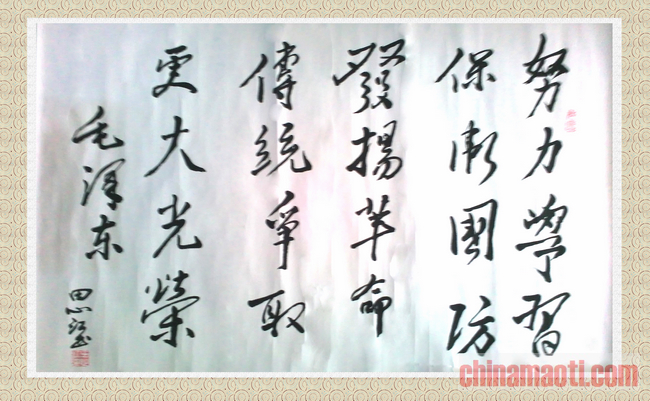 努力學習
保衛國防
發揚革命
傳統爭取
更大光榮
毛泽东
chinamaoti.com